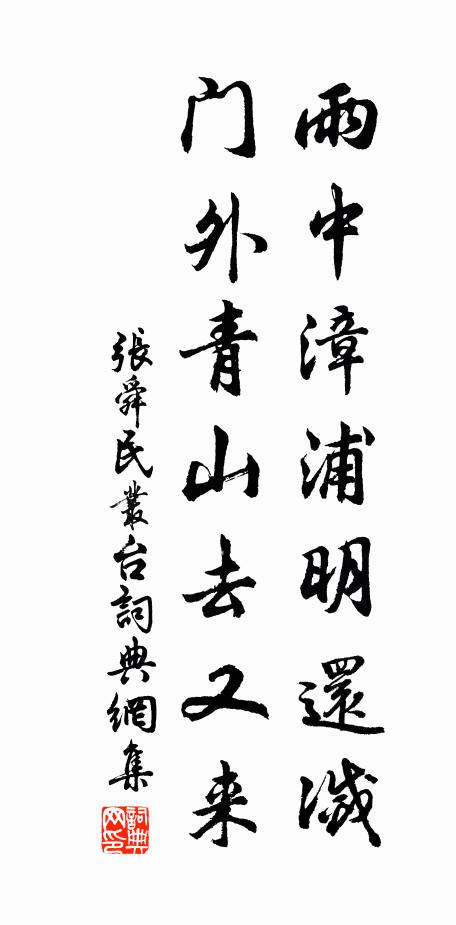 雨中漳浦明還滅
门外青山去又来
張舜民叢台詞典網集
詞典网印